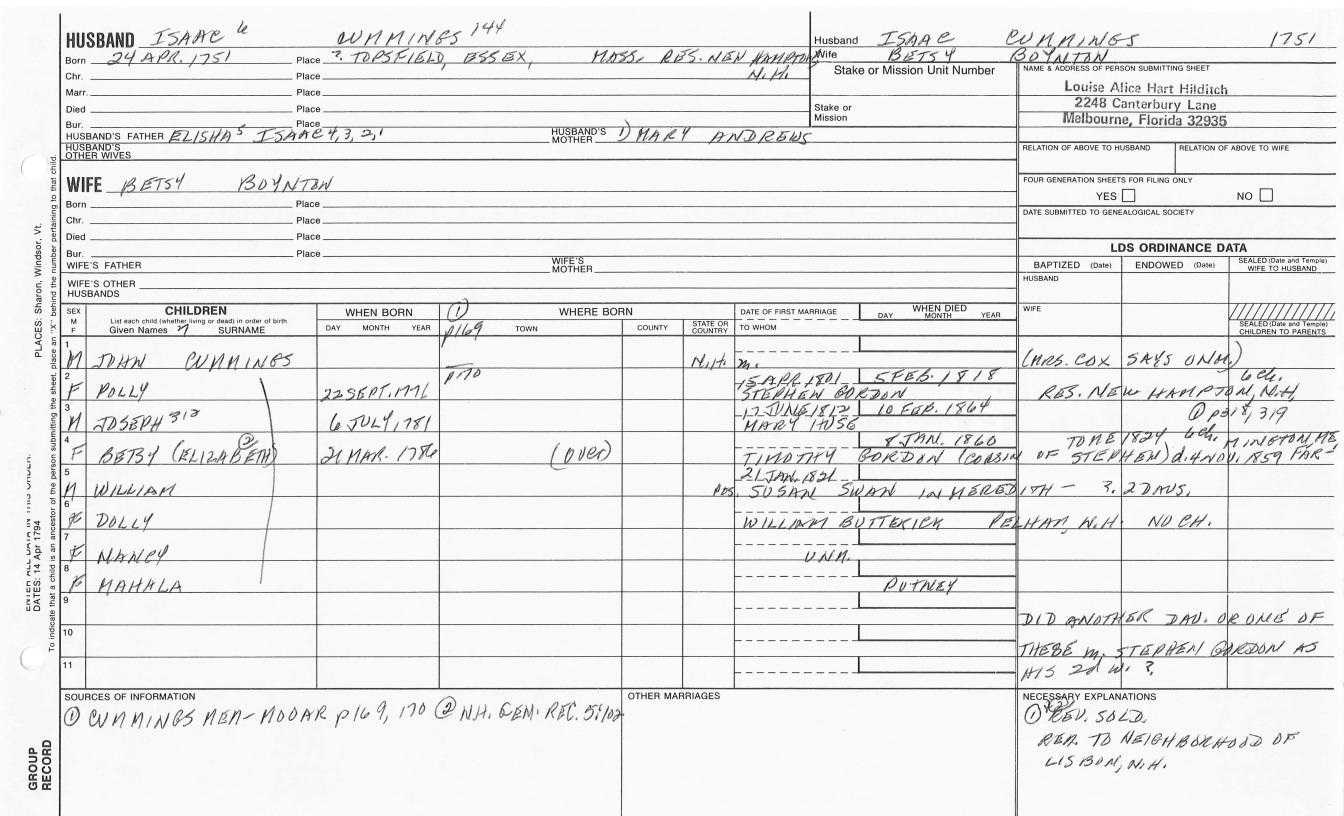 HUSBAND ISAAC 6 CUMMINGS 144
Born 24 APR. 1751 Place ? TOPSFIELD, ESSEX, MASS. RES. NEW HAMPTON
N.H.
Chr. Place
Marr. Place
Died Place
Bur. Place
HUSBAND'S FATHER ELISHA 5 ISAAC 4, 3, 2, 1 HUSBAND'S MOTHER 1) MARY ANDREWS
HUSBAND'S OTHER WIVES
Husband ISAAC CUMMINGS 1751
Wife BETSY BOYNTON
Stake or Mission Unit Number
Stake or Mission
NAME & ADDRESS OF PERSON SUBMITTING SHEET
Louise Alice Hart Hilditch
2248 Canterbury Lane
Melbourne, Florida 32935
RELATION OF ABOVE TO HUSBAND RELATION OF ABOVE TO WIFE
FOUR GENERATION SHEETS FOR FILING ONLY
YES NO
DATE SUBMITTED TO GENEALOGICAL SOCIETY
WIFE BETSY BOYNTON
Born Place
Chr. Place
Died Place
Bur. Place
WIFE'S FATHER WIFE'S MOTHER
WIFE'S OTHER HUSBANDS
LDS ORDINANCE DATA
BAPTIZED (Date) ENDOWED (Date) SEALED (Date and Temple) WIFE TO HUSBAND
HUSBAND
WIFE
SEALED (Date and Temple) CHILDREN TO PARENTS
SEX M F CHILDREN WHEN BORN ① WHERE BORN DATE OF FIRST MARRIAGE WHEN DIED
List each child (whether living or dead) in order of birth
Given Names 7 SURNAME DAY MONTH YEAR p169 TOWN COUNTY STATE OR COUNTRY TO WHOM DAY MONTH YEAR
1 M JOHN CUMMINGS N.H. m. (MRS. COX SAYS UNM.)
p170
2 F POLLY 22 SEPT. 1776 15 APR. 1801 5 FEB. 1818 6 ch.
STEPHEN GORDON RES. NEW HAMPTON, N.H.
3 M JOSEPH 312 6 JULY, 1781 17 JUNE 1812 10 FEB. 1864 ① p318, 319
MARY HUSE
4 F BETSY (ELIZABETH) ② 21 MAR. 1786 (over) 8 JAN. 1860 TO ME 1824 6 ch. MINGTON, ME
TIMOTHY GORDON (COUSIN OF STEPHEN) d. 4 NOV. 1859 FAR-
5 M WILLIAM 21 JAN. 1821
pos. SUSAN SWAN IN MEREDITH - ?. 2 DAUS.
6 F DOLLY WILLIAM BUTTERICK PELHAM, N.H. NO CH.
7 F NANCY UNM.
8 F MAHALA PUTNEY
9 DID ANOTHER DAU. OR ONE OF
10 THESE m. STEPHEN GORDON AS
11 HIS 2d w. ?
SOURCES OF INFORMATION
① CUMMINGS MEM- MOOAR p169, 170 ② N.H. GEN. REC. 5:102
OTHER MARRIAGES
NECESSARY EXPLANATIONS
① REV. SOLD.
REM. TO NEIGHBORHOOD OF
LISBON, N.H.
PLACES: Sharon, Windsor, Vt.
ENTER ALL DATA IN THIS ORDER:
DATES: 14 Apr 1794
To indicate that a child is an ancestor of the person submitting the sheet, place an "X" behind the number pertaining to that child.
GROUP RECORD